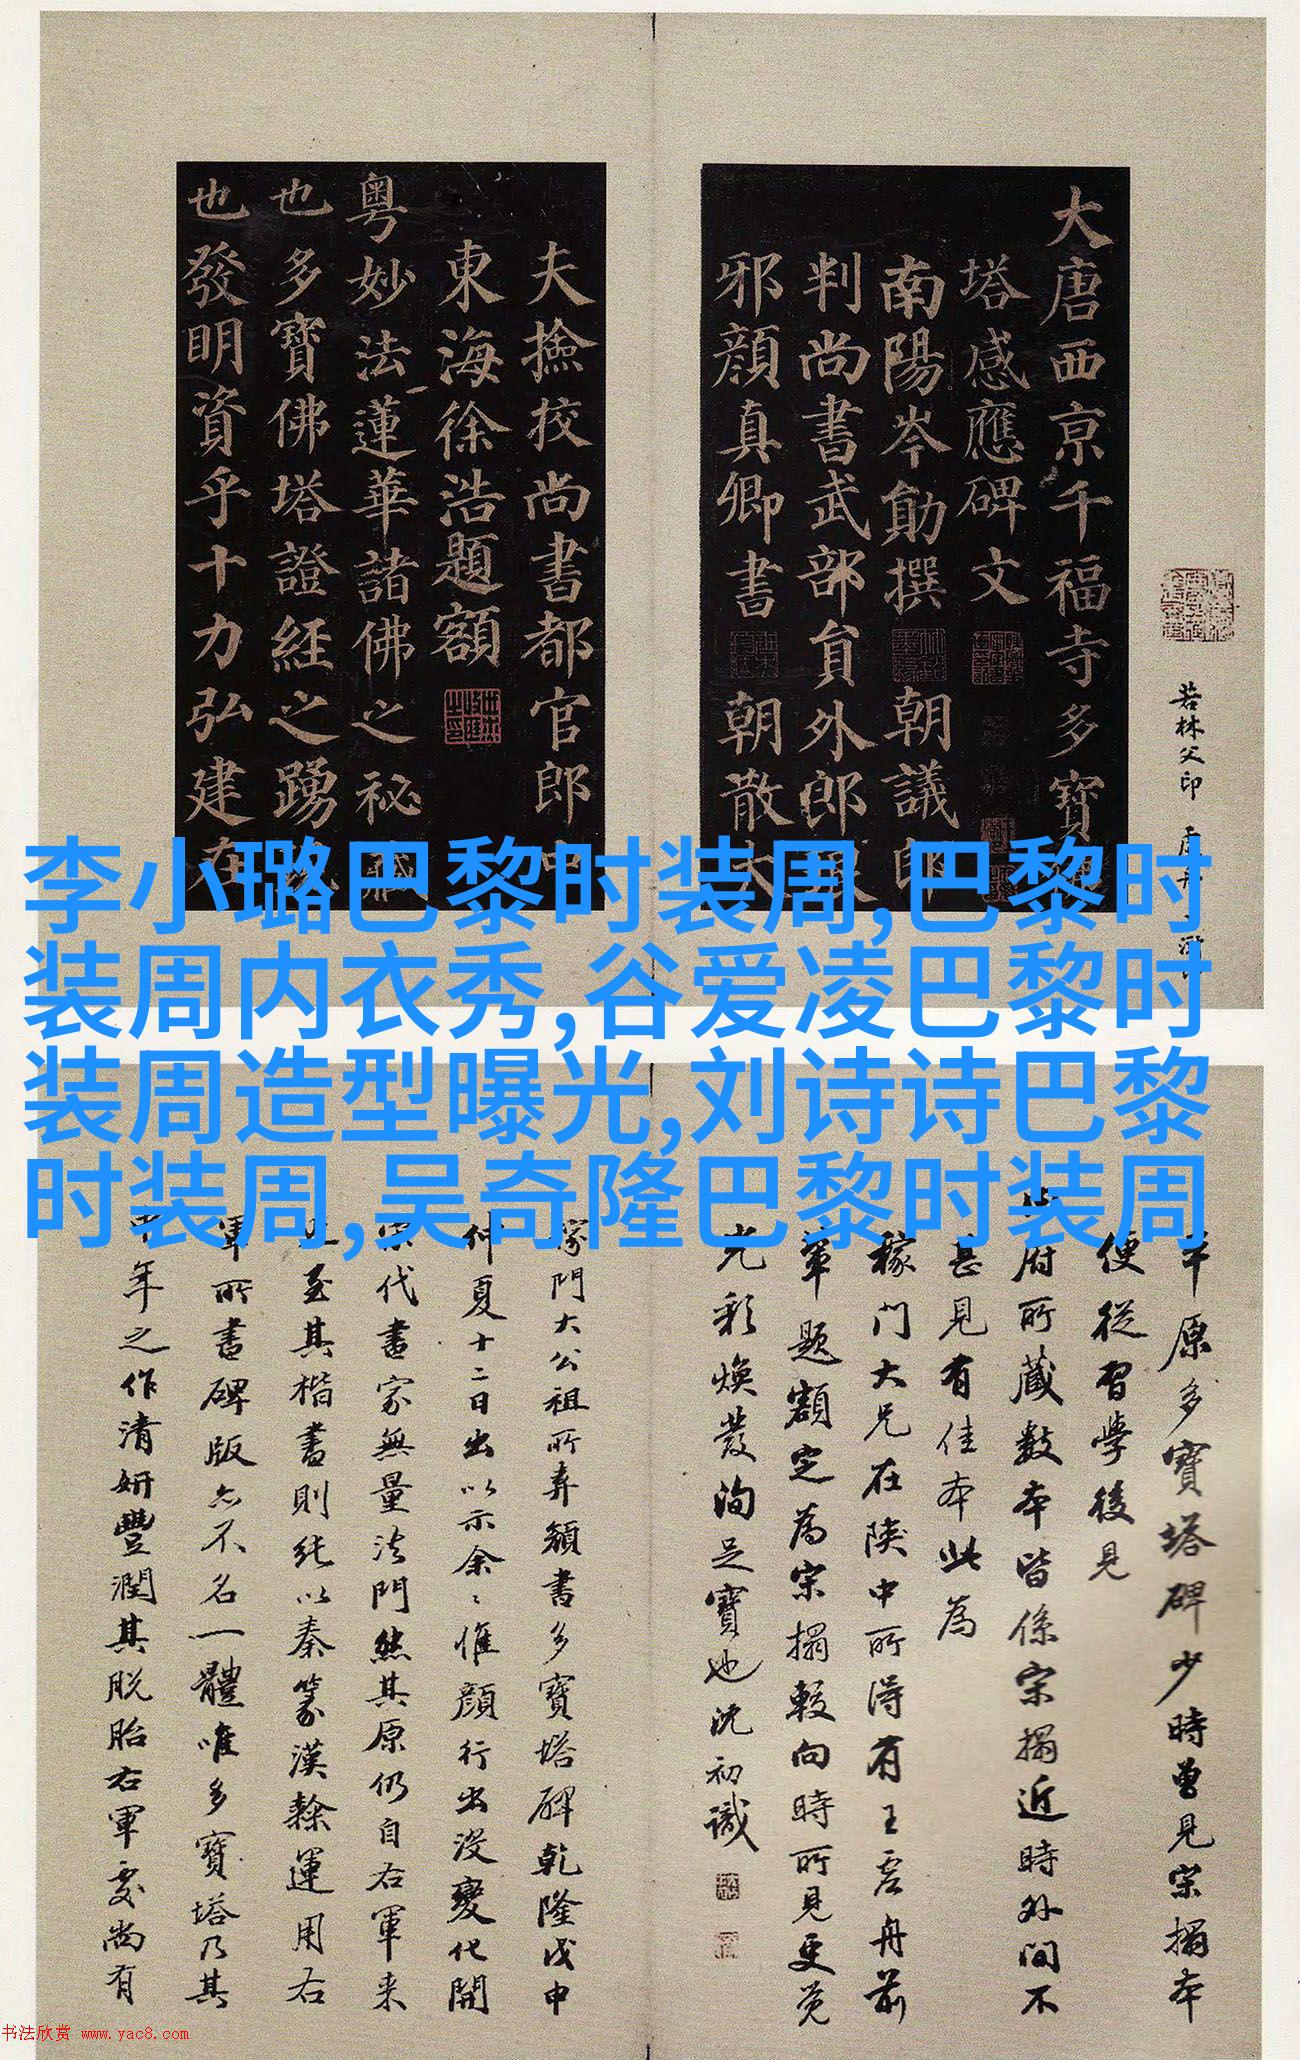 大唐西京千福寺多寶
塔感應碑文
南陽岑勛撰
朝議郎
判尚書武部員外郎
邪顏真卿書
朝散大
夫撿挍尚書都官郎中
東海徐浩題額
粵妙法蓮華諸佛之祕藏
也多寶佛塔證經之踴
也發明資乎十力弘建在
若林父印
李小璐巴黎时装周,巴黎时
装周内衣秀,谷爱凌巴黎时
装周造型曝光,刘诗诗巴黎
时装周,吴奇隆巴黎时装周
平原多寶塔碑少時曾見宋搨本
便從習學後見
府所藏數本皆係宋搨近時外間不
甚見有佳本此為
稼門大兄在陝中所得有王虛舟前
輩題額定為宋搨較向時所見更覺
光彩煥發洵足寶也沈初識
稼門大公祖所弆顏書多寶塔碑乾隆戊申
仲夏十二日出以示余〻惟顏行出沒變化開
宋代書家無量法門然其原仍自右軍来
至其楷書則純以秦篆漢隸運用右
軍所書碑版亦不名一體唯多寶塔乃其
中年之作清妍豐潤其脫胎右軍處尚有
书法欣赏 www.yac8.com